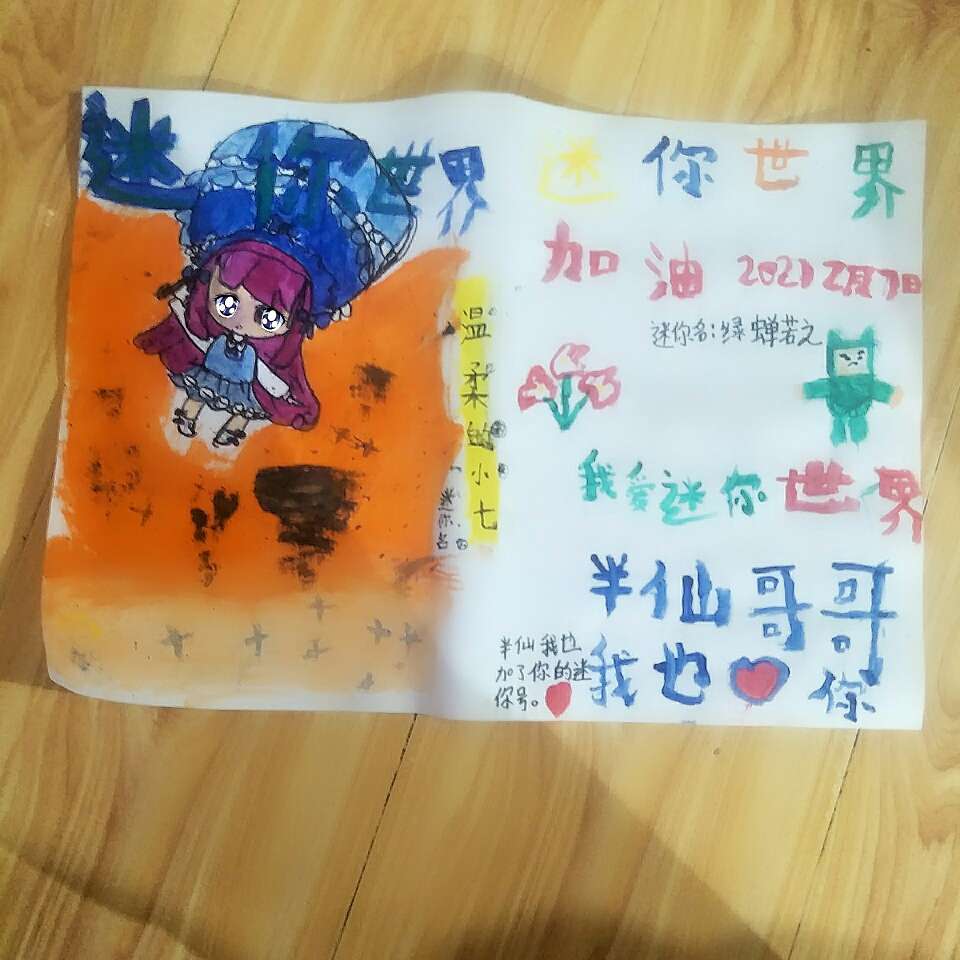 迷你世界
温柔的小七
迷你名
迷你世界
加油 2021 2月7日
迷你名:绿蝉若之
我爱迷你世界
半仙哥哥
我也你
半仙我也
加了你的迷
你号。